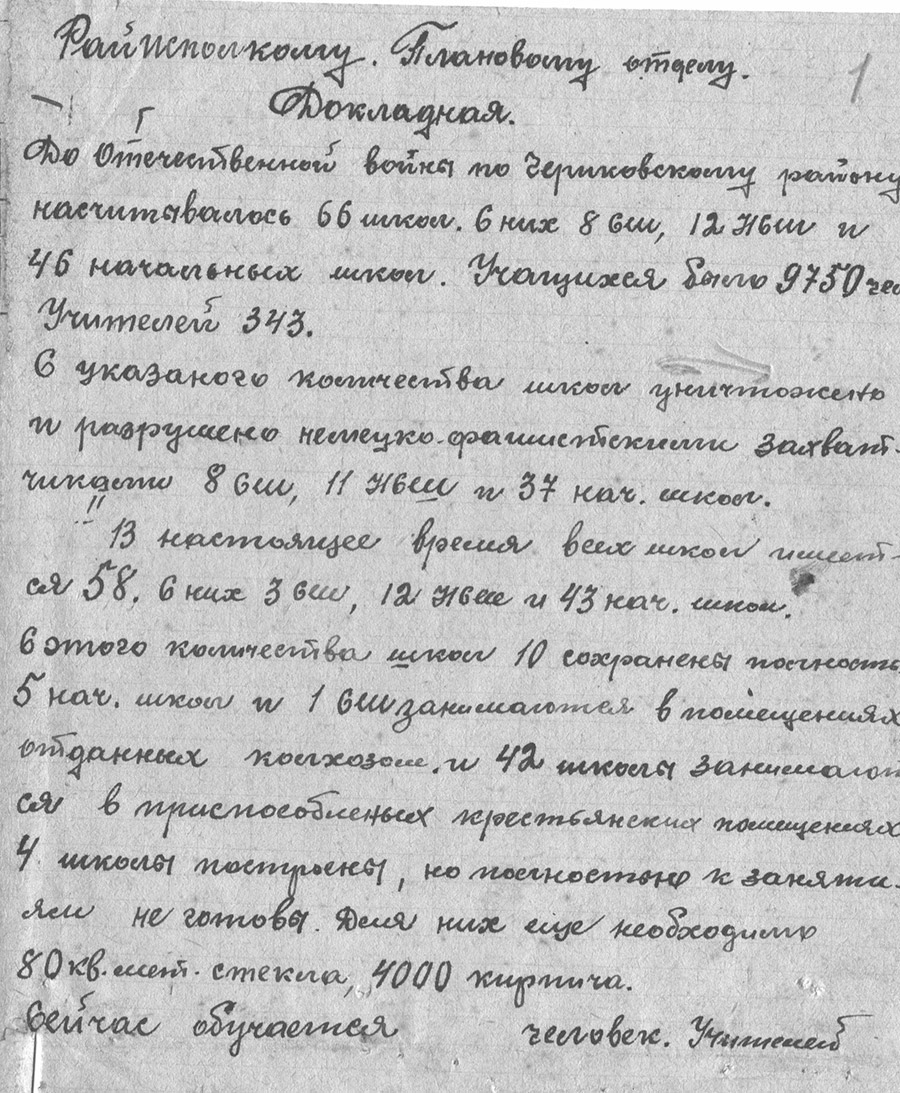 Райисполкому. Плановому отделу.
1
Докладная.
До Отечественной войны по Чериковскому району
насчитывалось 66 школ. С них 8 СШ, 12 НСШ и
46 начальных школ. Учащихся было 9750 чел
Учителей 343.
С указаного количества школ уничтожено
и разрушено немецко-фашистскими захват-
чиками 8 СШ, 11 НСШ и 37 нач. школ.
В настоящее время всех школ имеет-
ся 58. С них 3 СШ, 12 НСШ и 43 нач. школ.
С этого количества школ 10 сохранены полность
5 нач. школ и 1 СШ занимаются в помещениях
отданных колхозом. и 42 школы занимают
ся в приспособленых крестьянских помещениях
4 школы построены, но полностью к заняти-
ям не готовы. Для них еще необходимо
80 кв. мет. стекла, 4000 кирпича.
Сейчас обучается человек. Учителей